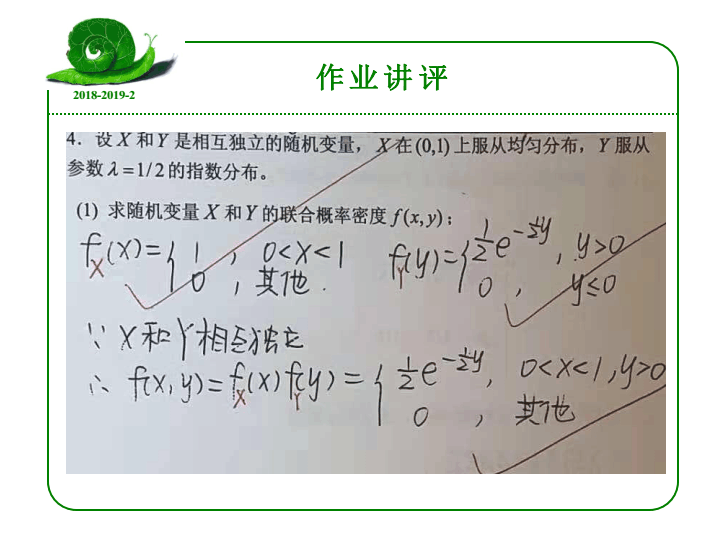 作业讲评
2018-2019-2
4．设 X 和 Y 是相互独立的随机变量， X 在 (0,1) 上服从均匀分布，Y 服从
参数 λ =1/2 的指数分布。
(1) 求随机变量 X 和 Y 的联合概率密度 f(x,y)；
f_X(x)={1 , 0<x<1 f_Y(y)={1/2 e^{-1/2 y} , y>0
0 , 其他. 0 , y≤0
∵ X和Y相互独立
∴ f(x,y)=f_X(x)f_Y(y)={1/2 e^{-1/2 y}, 0<x<1,y>0
0 , 其他